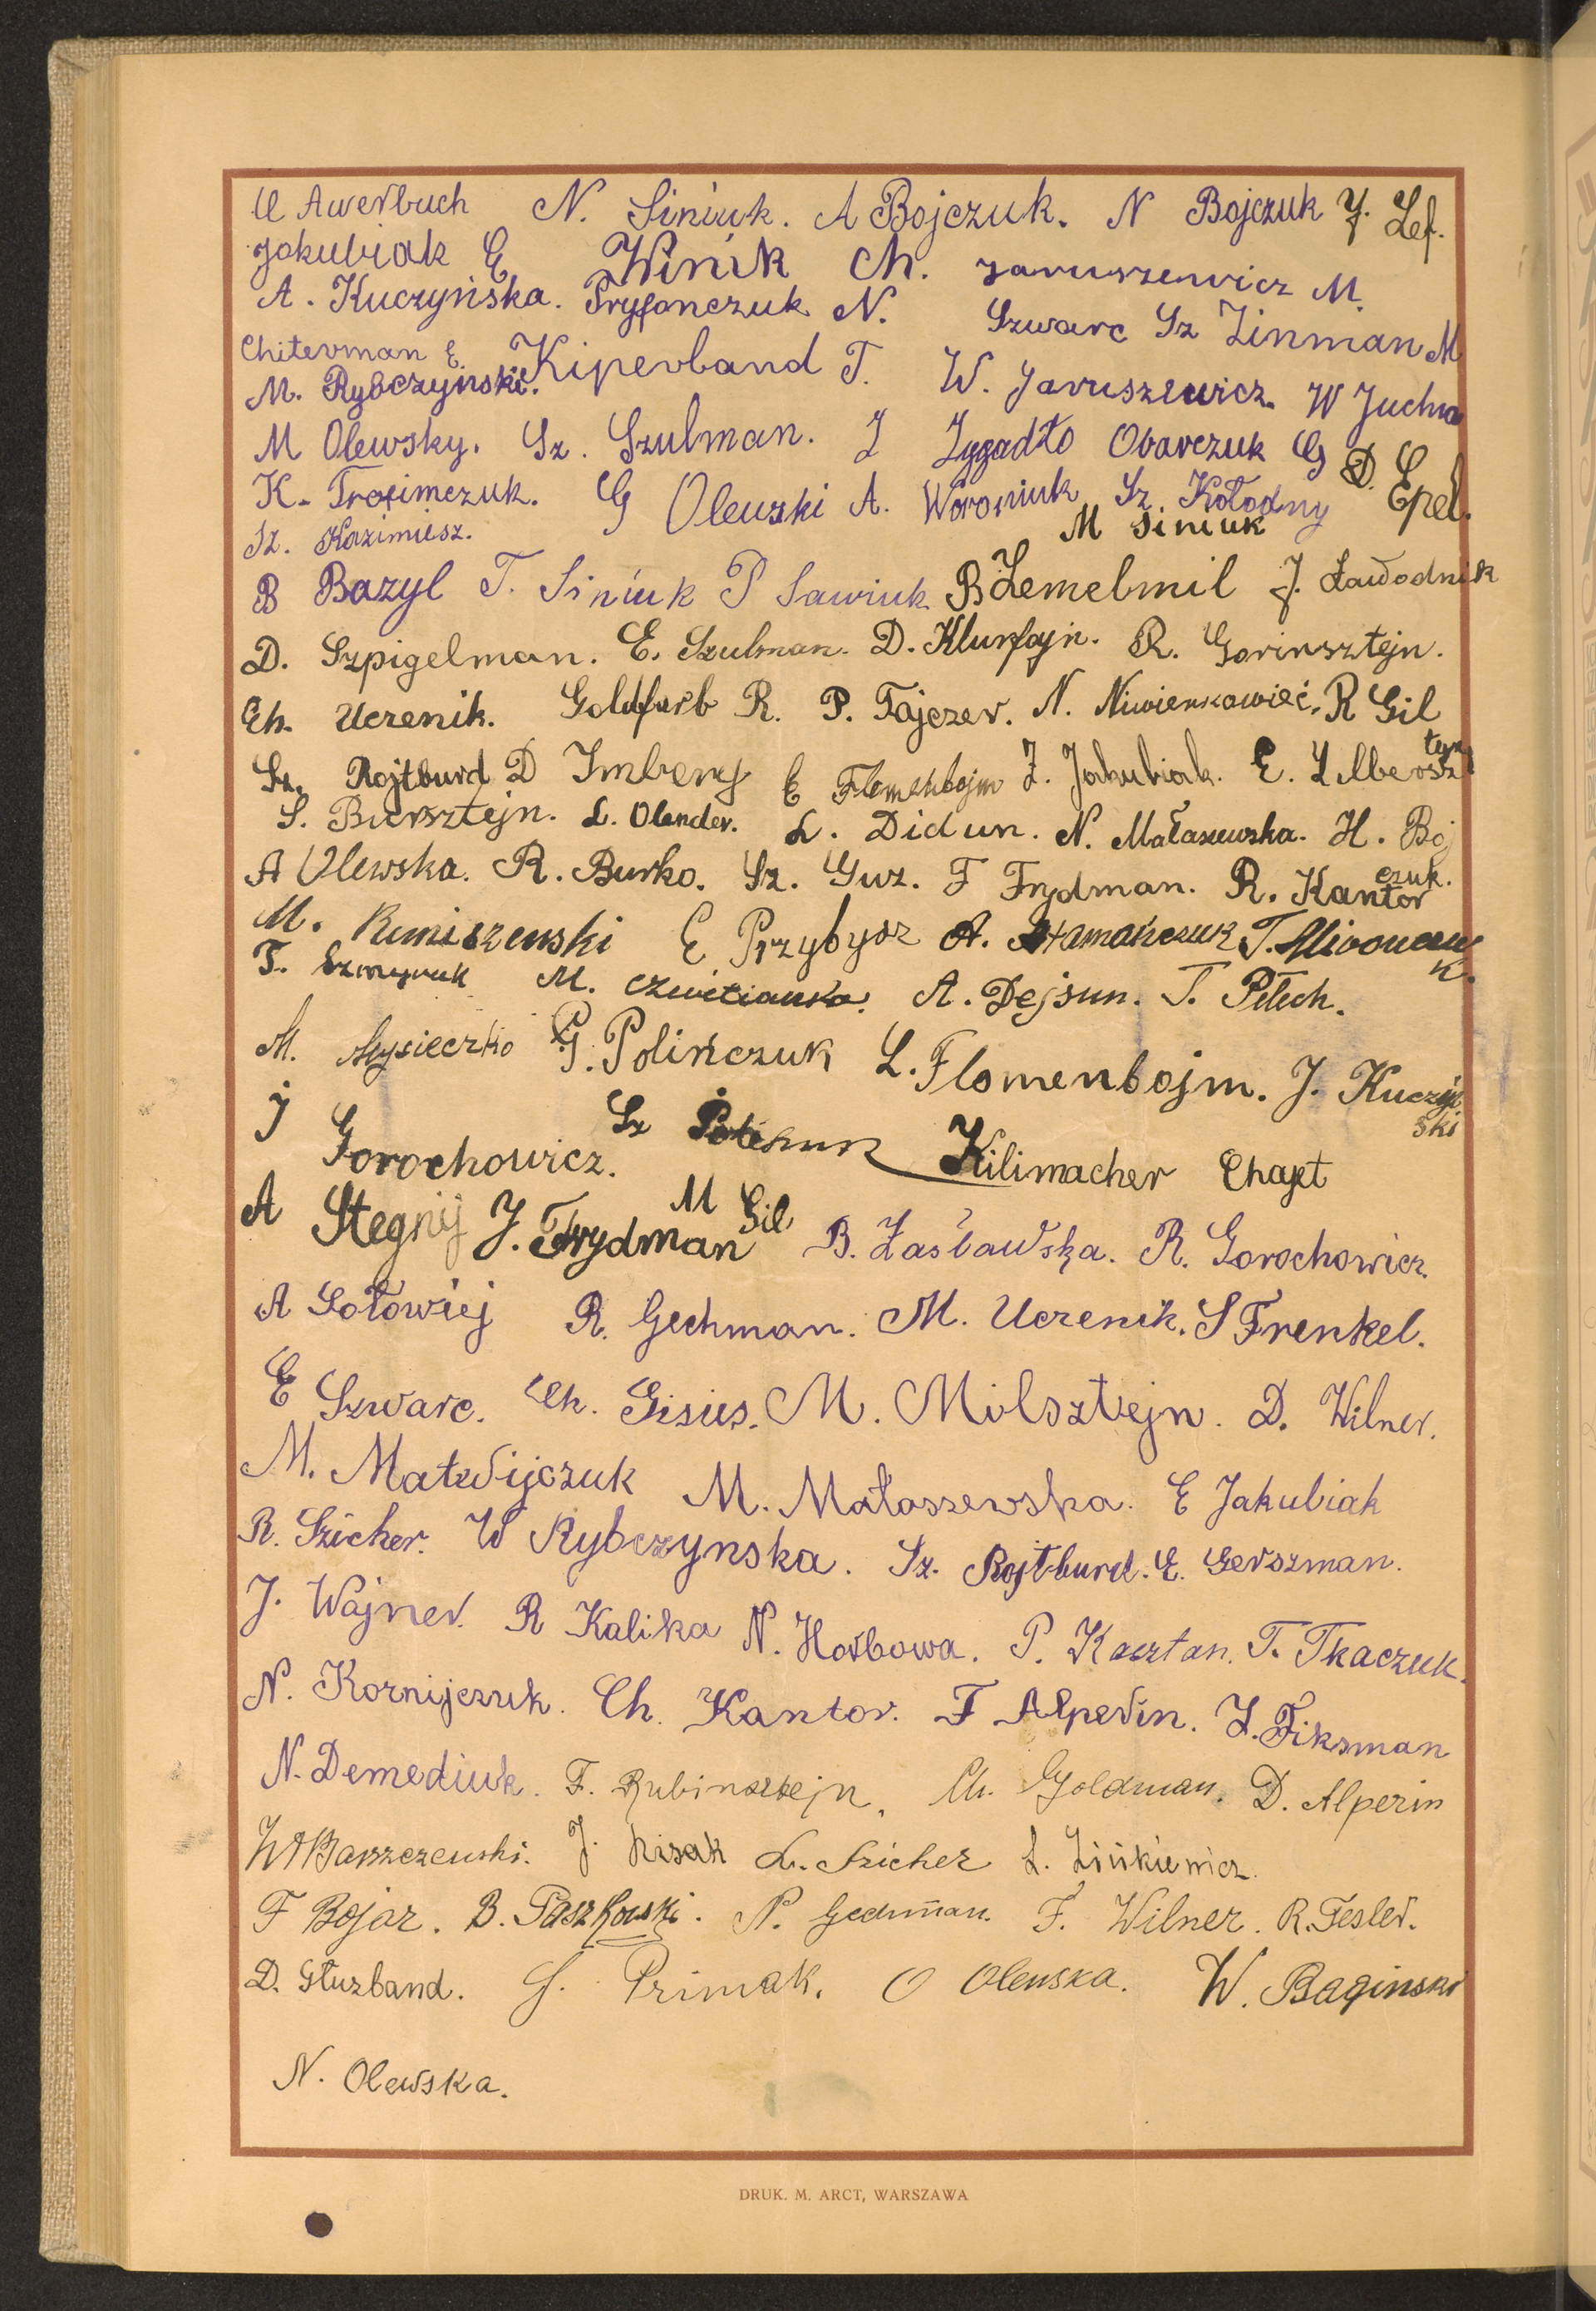 U Awerbuch N. Siniuk. A Bojczuk. N Bojczuk J. Lef.
Jakubiak E Winik Ch. Jaruszewicz M.
A. Kuczyńska. Tryfonczuk N. Szwarc Sz Zinman M
Chiterman E. Kiperband T. W. Jaruszewicz. W Jucha
M. Rybczyński.
M Olewsky. Sz. Szulman. Z Zygadło Owarczuk G D. Epel.
K. Trofimczuk. G Olewski A. Woroniuk Sz. Kołodny
Sz. Kazimiesz. M Siniuk
B Bazyl T. Siniuk P Sawiuk B Zemelmil J. Zawodnik
D. Szpigelman. E. Szulman. D. Klurfajn. R. Gorinsztejn.
Ch. Uczenik. Goldfarb R. P. Tajczer. N. Niwienkowieć, R Gil
Sz. Rojtburd D Imberg E Flomenbojm Z. Jakubiak. E. Zilbersz
tejn
S. Bursztejn. L. Olender. L. Didun. N. Małaszewska. H. Boj
czuk.
A Olewska. R. Burko. Sz. Guz. F Frydman. R. Kantor
M. Remiszewski E Przybysz A. Atamańczuk T. Mironczu
k.
T. Szmyruk M. A. Dejsun. T. Pełech.
M. Mysieczko G. Polińczuk L. Flomenbojm. J. Kuczyń
ski
J Gorochowicz. Sz Kilimacher Chajet
A Stegnij J. Frydman M Gil B. Zasławska. R. Gorochowicz.
A Sołowiej R. Gechman. M. Uczenik. S Frenkel.
E Szwarc. Ch. Gisius. M. Milsztejn. D. Wilner.
M. Matwijczuk M. Małaszewska. E Jakubiak
R. Szicher. W Rybczynska. Sz. Rojtburd. E. Gerszman.
J. Wajner. R Kalika N. Horbowa. P. Kasztan. T. Tkaczuk.
N. Kornijczuk. Ch. Kantor. F Alperin. Z. Fiksman
N. Demediuk. F. Rubinsztejn. Ch. Goldman. D. Alperin
W Barszczewski. J. Kisak L. Szicher L. Zińkiewicz.
F Bojar. B. Paszkowski. N. Gechman. F. Wilner. R. Fesler.
D. Głuzband. S. Primak. O Olewska. W. Baginski
N. Olewska.
DRUK. M. ARCT, WARSZAWA